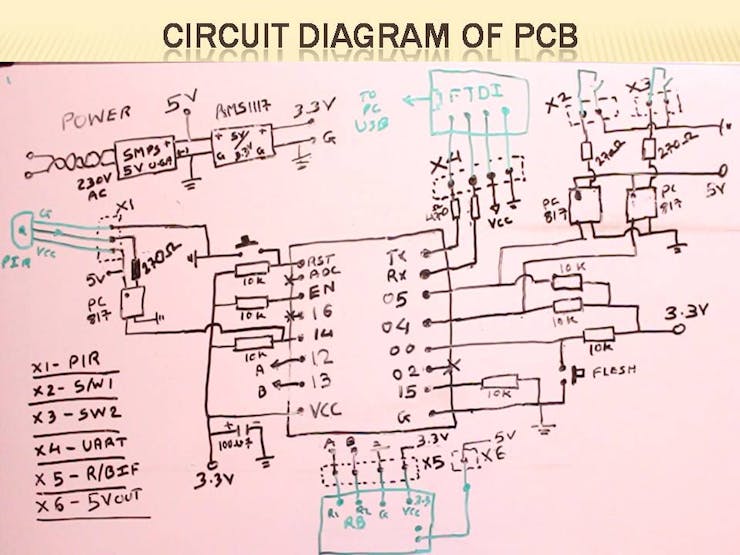 CIRCUIT DIAGRAM OF PCB
POWER
5V
AMS1117
3.3V
TO PC USB
FTDI
X2
X3
SMPS
5V
+ 5V +
G 3.3V G
G
230V
AC
X4
270Ω
270Ω
5V
X1
G
VCC
PIR
470
VCC
PC
817
PC
817
270Ω
5V
PC
817
RST
ADC
EN
16
14
12
13
VCC
TX
RX
05
04
00
02
15
G
10K
10K
10K
10K
10K
10K
10K
3.3V
FLESH
A
B
3.3V
A B
3.3V
X5
5V
X6
R1 R2 G VCC
3.3
RB
X1- PIR
X2- S/W1
X3-SW2
X4-UART
X5-R/BIF
X6-5VOUT